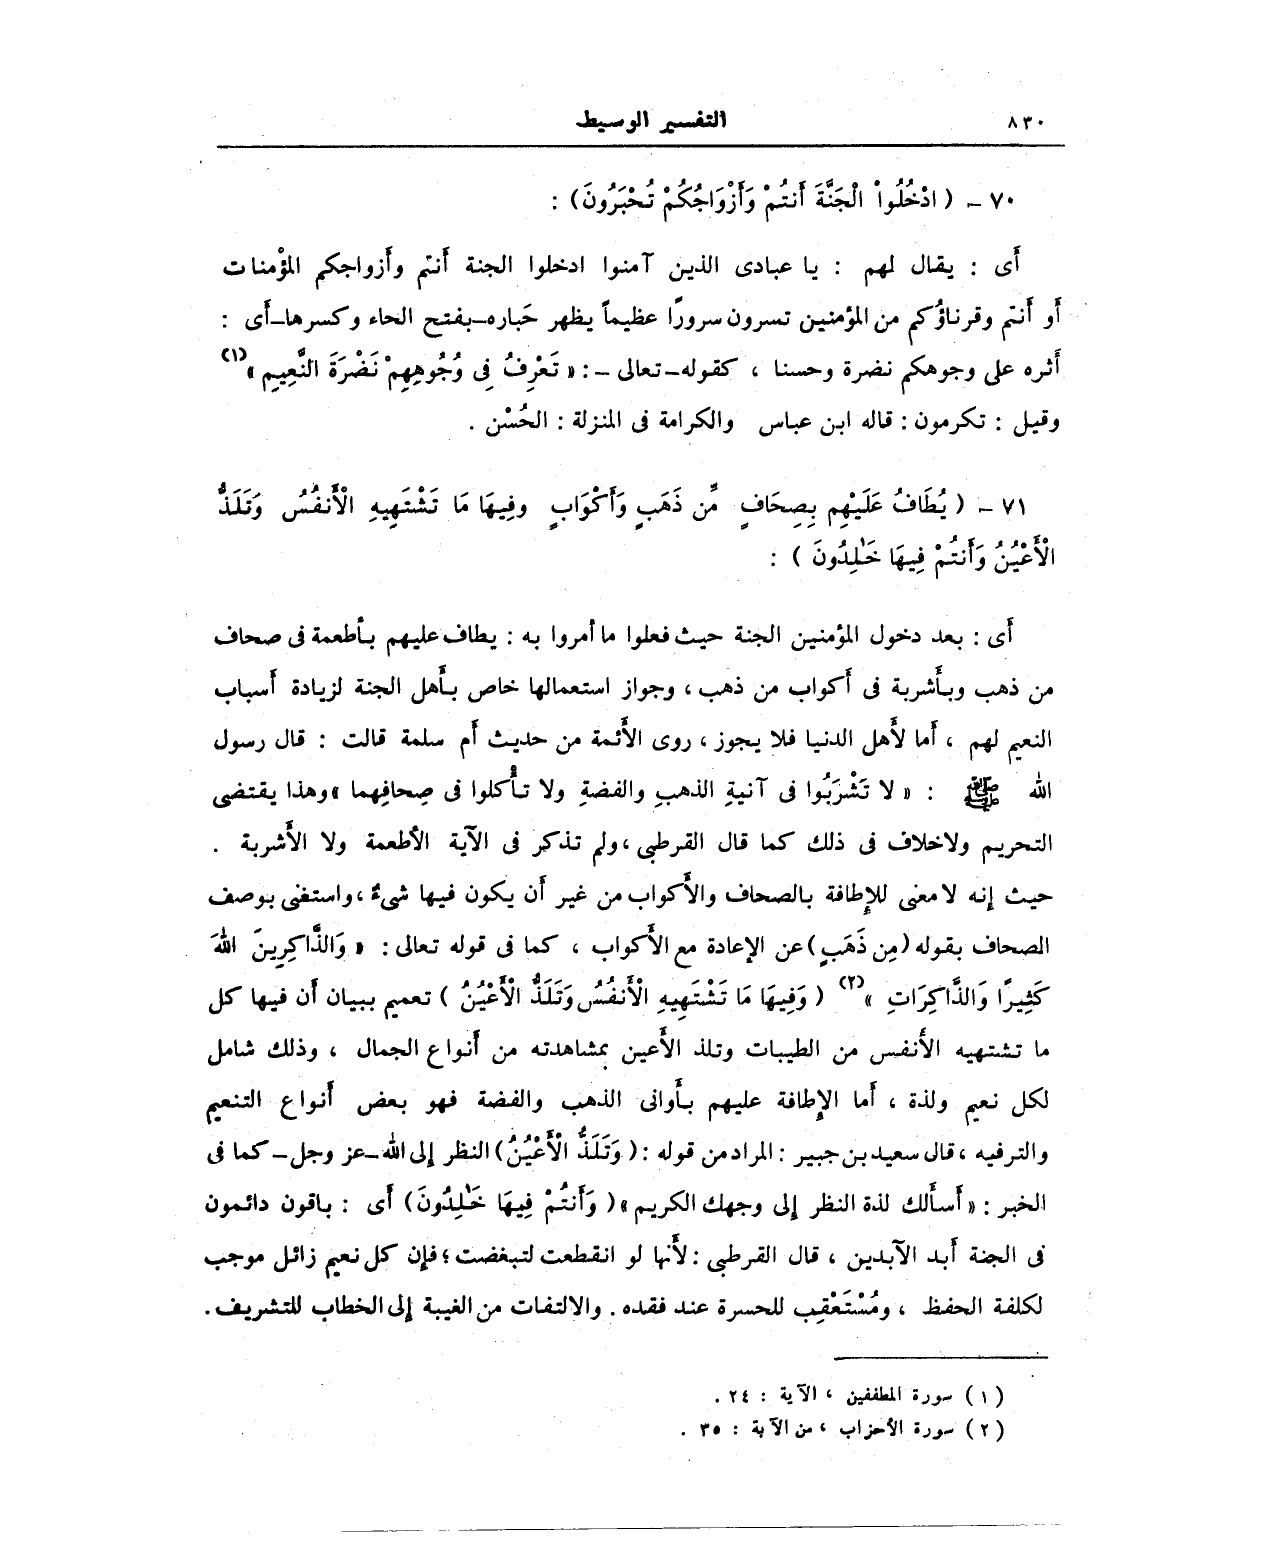 ٨٣٠ التفسير الوسيط
٧٠ - ( ادْخُلُواْ الْجَنَّةَ أَنتُمْ وَأَزْوَاجُكُمْ تُحْبَرُونَ ) :
أَى : يقال لهم : يا عبادى الذين آمنوا ادخلوا الجنة أَنتم وأَزواجكم المؤْمنات
أَو أَنتم وقرناؤُكم من المؤمنين تسرون سرورًا عظيماً يظهر حَباره-بفتح الحاء وكسرها-أَى :
أَثره على وجوهكم نضرة وحسنا ، كقوله-تعالى - : « تَعْرِفُ فِى وُجُوهِهِمْ نَضْرَةَ النَّعِيمِ » (١)
وقيل : تكرمون : قاله ابن عباس والكرامة فى المنزلة : الحُسْن .
٧١ - ( يُطَافُ عَلَيْهِم بِصِحَافٍ مِّن ذَهَبٍ وَأَكْوَابٍ وفِيهَا مَا تَشْتَهِيهِ الْأَنفُسُ وَتَلَذُّ
الْأَعْيُنُ وَأَنتُمْ فِيهَا خَٰلِدُونَ ) :
أَى : بعد دخول المؤمنين الجنة حيث فعلوا ما أمروا به : يطاف عليهم بأَطعمة فى صحاف
من ذهب وبأَشربة فى أَكواب من ذهب ، وجواز استعمالها خاص بأَهل الجنة لزيادة أَسباب
النعيم لهم ، أَما لأَهل الدنيا فلا يجوز ، روى الأَئمة من حديث أَم سلمة قالت : قال رسول
الله ﷺ : « لا تَشْرَبُوا فى آنيةِ الذهبِ والفضةِ ولا تأْكلوا فى صِحافِهما » وهذا يقتضى
التحريم ولاخلاف فى ذلك كما قال القرطبى ، ولم تذكر فى الآية الأطعمة ولا الأَشربة .
حيث إنه لا معنى للإِطافة بالصحاف والأَكواب من غير أَن يكون فيها شىءٌ ، واستغنى بوصف
الصحاف بقوله ( مِن ذَهَبٍ ) عن الإعادة مع الأَكواب ، كما فى قوله تعالى : « وَالذَّاكِرِينَ اللهَ
كَثِيرًا وَالذَّاكِرَاتِ » (٢) ( وَفِيهَا مَا تَشْتَهِيهِ الْأَنفُسُ وَتَلَذُّ الْأَعْيُنُ ) تعميم ببيان أَن فيها كل
ما تشتهيه الأنفس من الطيبات وتلذ الأَعين بمشاهدته من أَنواع الجمال ، وذلك شامل
لكل نعيم ولذة ، أَما الإِطافة عليهم بأَوانى الذهب والفضة فهو بعض أَنواع التنعيم
والترفيه ، قال سعيد بن جبير : المراد من قوله : ( وَتَلَذُّ الْأَعْيُنُ ) النظر إلى الله-عز وجل-كما فى
الخبر : « أَسأَلك لذة النظر إلى وجهك الكريم » ( وَأَنتُمْ فِيهَا خَٰلِدُونَ ) أَى : باقون دائمون
فى الجنة أَبد الآبدين ، قال القرطبى : لأَنها لو انقطعت لتبغضت ؛ فإن كل نعيم زائل موجب
لكلفة الحفظ ، ومُسْتَعْقِب للحسرة عند فقده . والالتفات من الغيبة إلى الخطاب للتشريف .
(١) سورة المطففين ، الآية : ٢٤ .
(٢) سورة الأحزاب ، من الآية : ٣٥ .